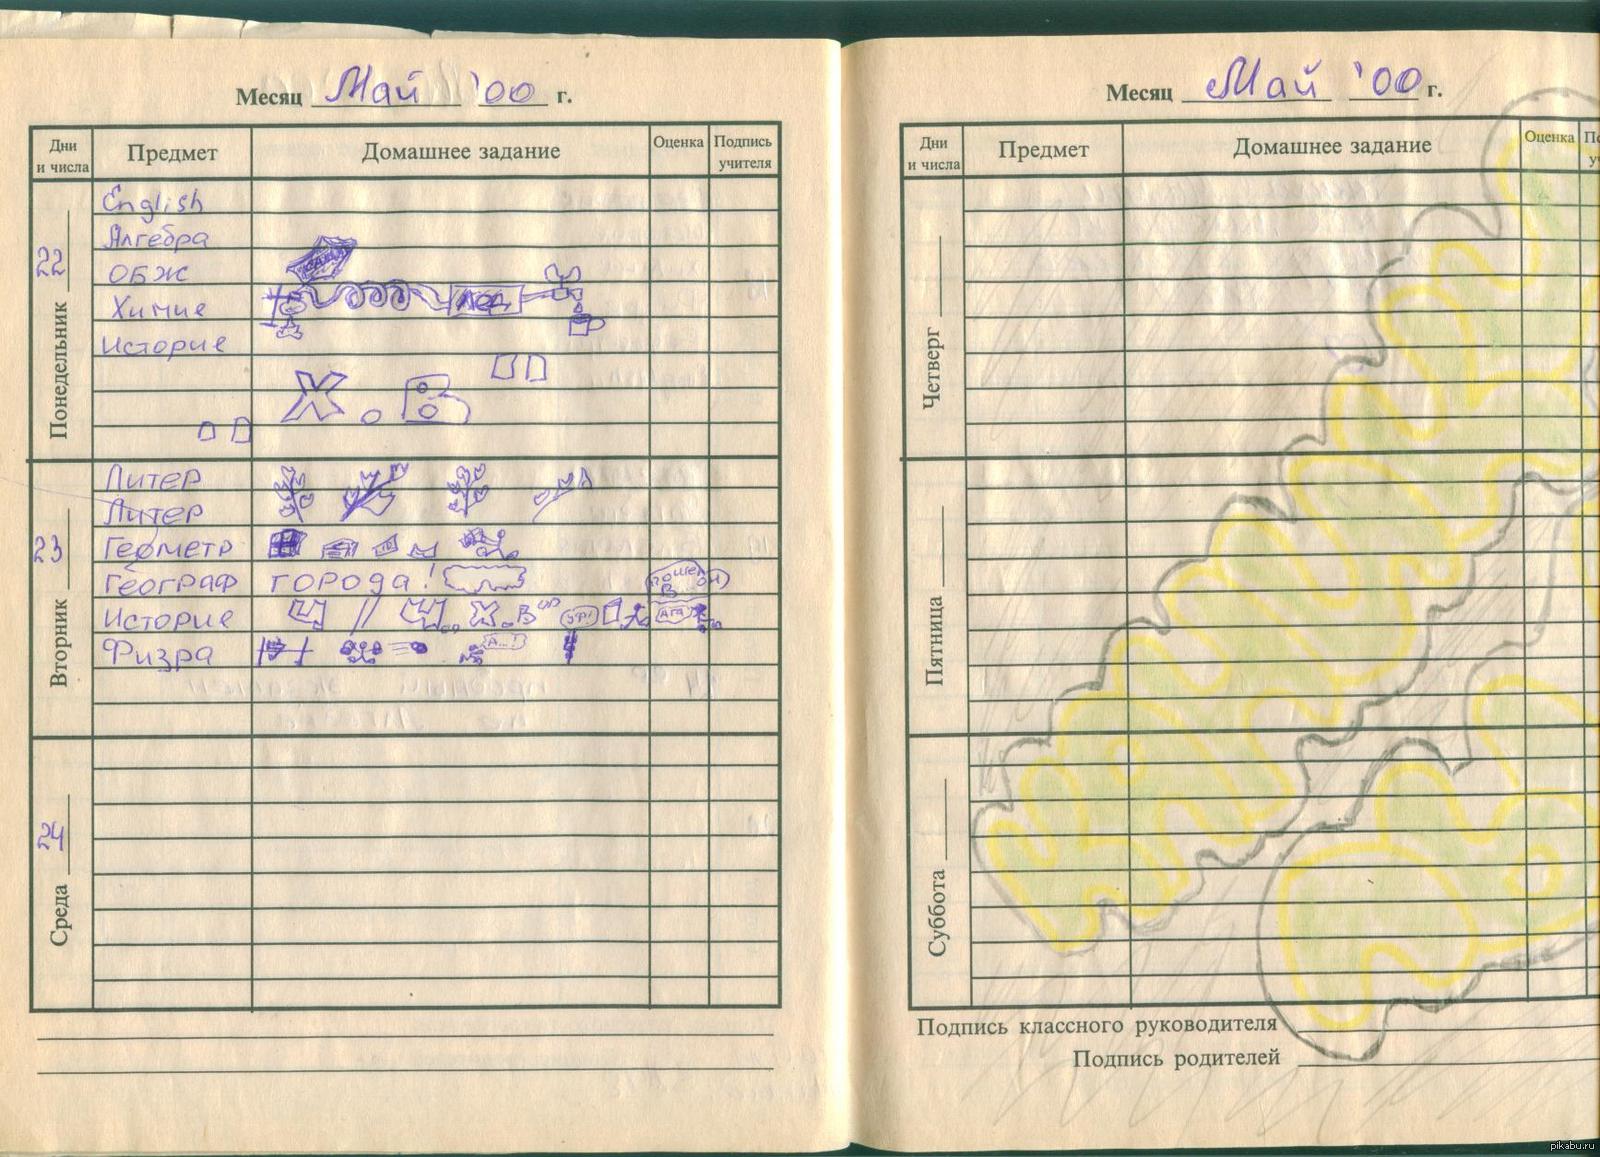 Месяц Май '00 г.
Дни и числа Предмет Домашнее задание Оценка Подпись учителя
Понедельник 22
English
Алгебра
ОБЖ
Химие
лод
Историе
Х.В
Вторник 23
Литер
Литер
Геометр
Географ города!
Историе Х.В АГА
Физра А...!
Среда 24
Месяц Май '00 г.
Дни и числа Предмет Домашнее задание Оценка
Четверг
Пятница
Суббота
Подпись классного руководителя
Подпись родителей
pikabu.ru